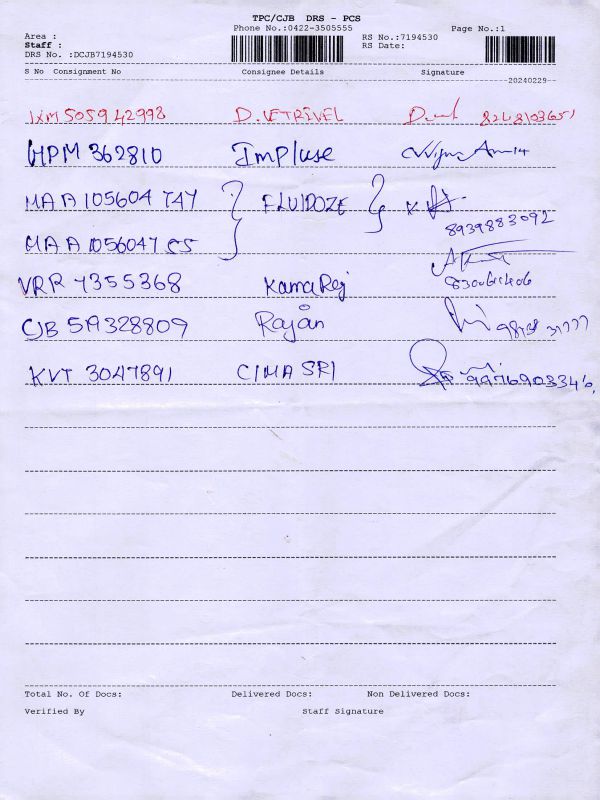 TPC/CJB DRS - PCS
Phone No.:0422-3505555 Page No.:1
Area : RS No.:7194530
Staff : RS Date:
DRS No. :DCJB7194530
S No Consignment No Consignee Details Signature
20240229
IXM 505942998 D. VETRIVEL
HPM 362810 Impluse
MAA 105604 747 FLUIDOZE
8939883092
MAA 1056047 55
VRR 7355368 KamaRaj
8300611406
CJB 519328809 Rajan
KVT 3047891 CIMA SRI 9976903346
Total No. Of Docs: Delivered Docs: Non Delivered Docs:
Verified By Staff Signature